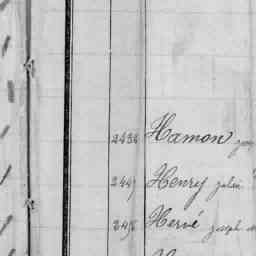 2434 Hamon
2447 Henry julien
2456 Hervé joseph